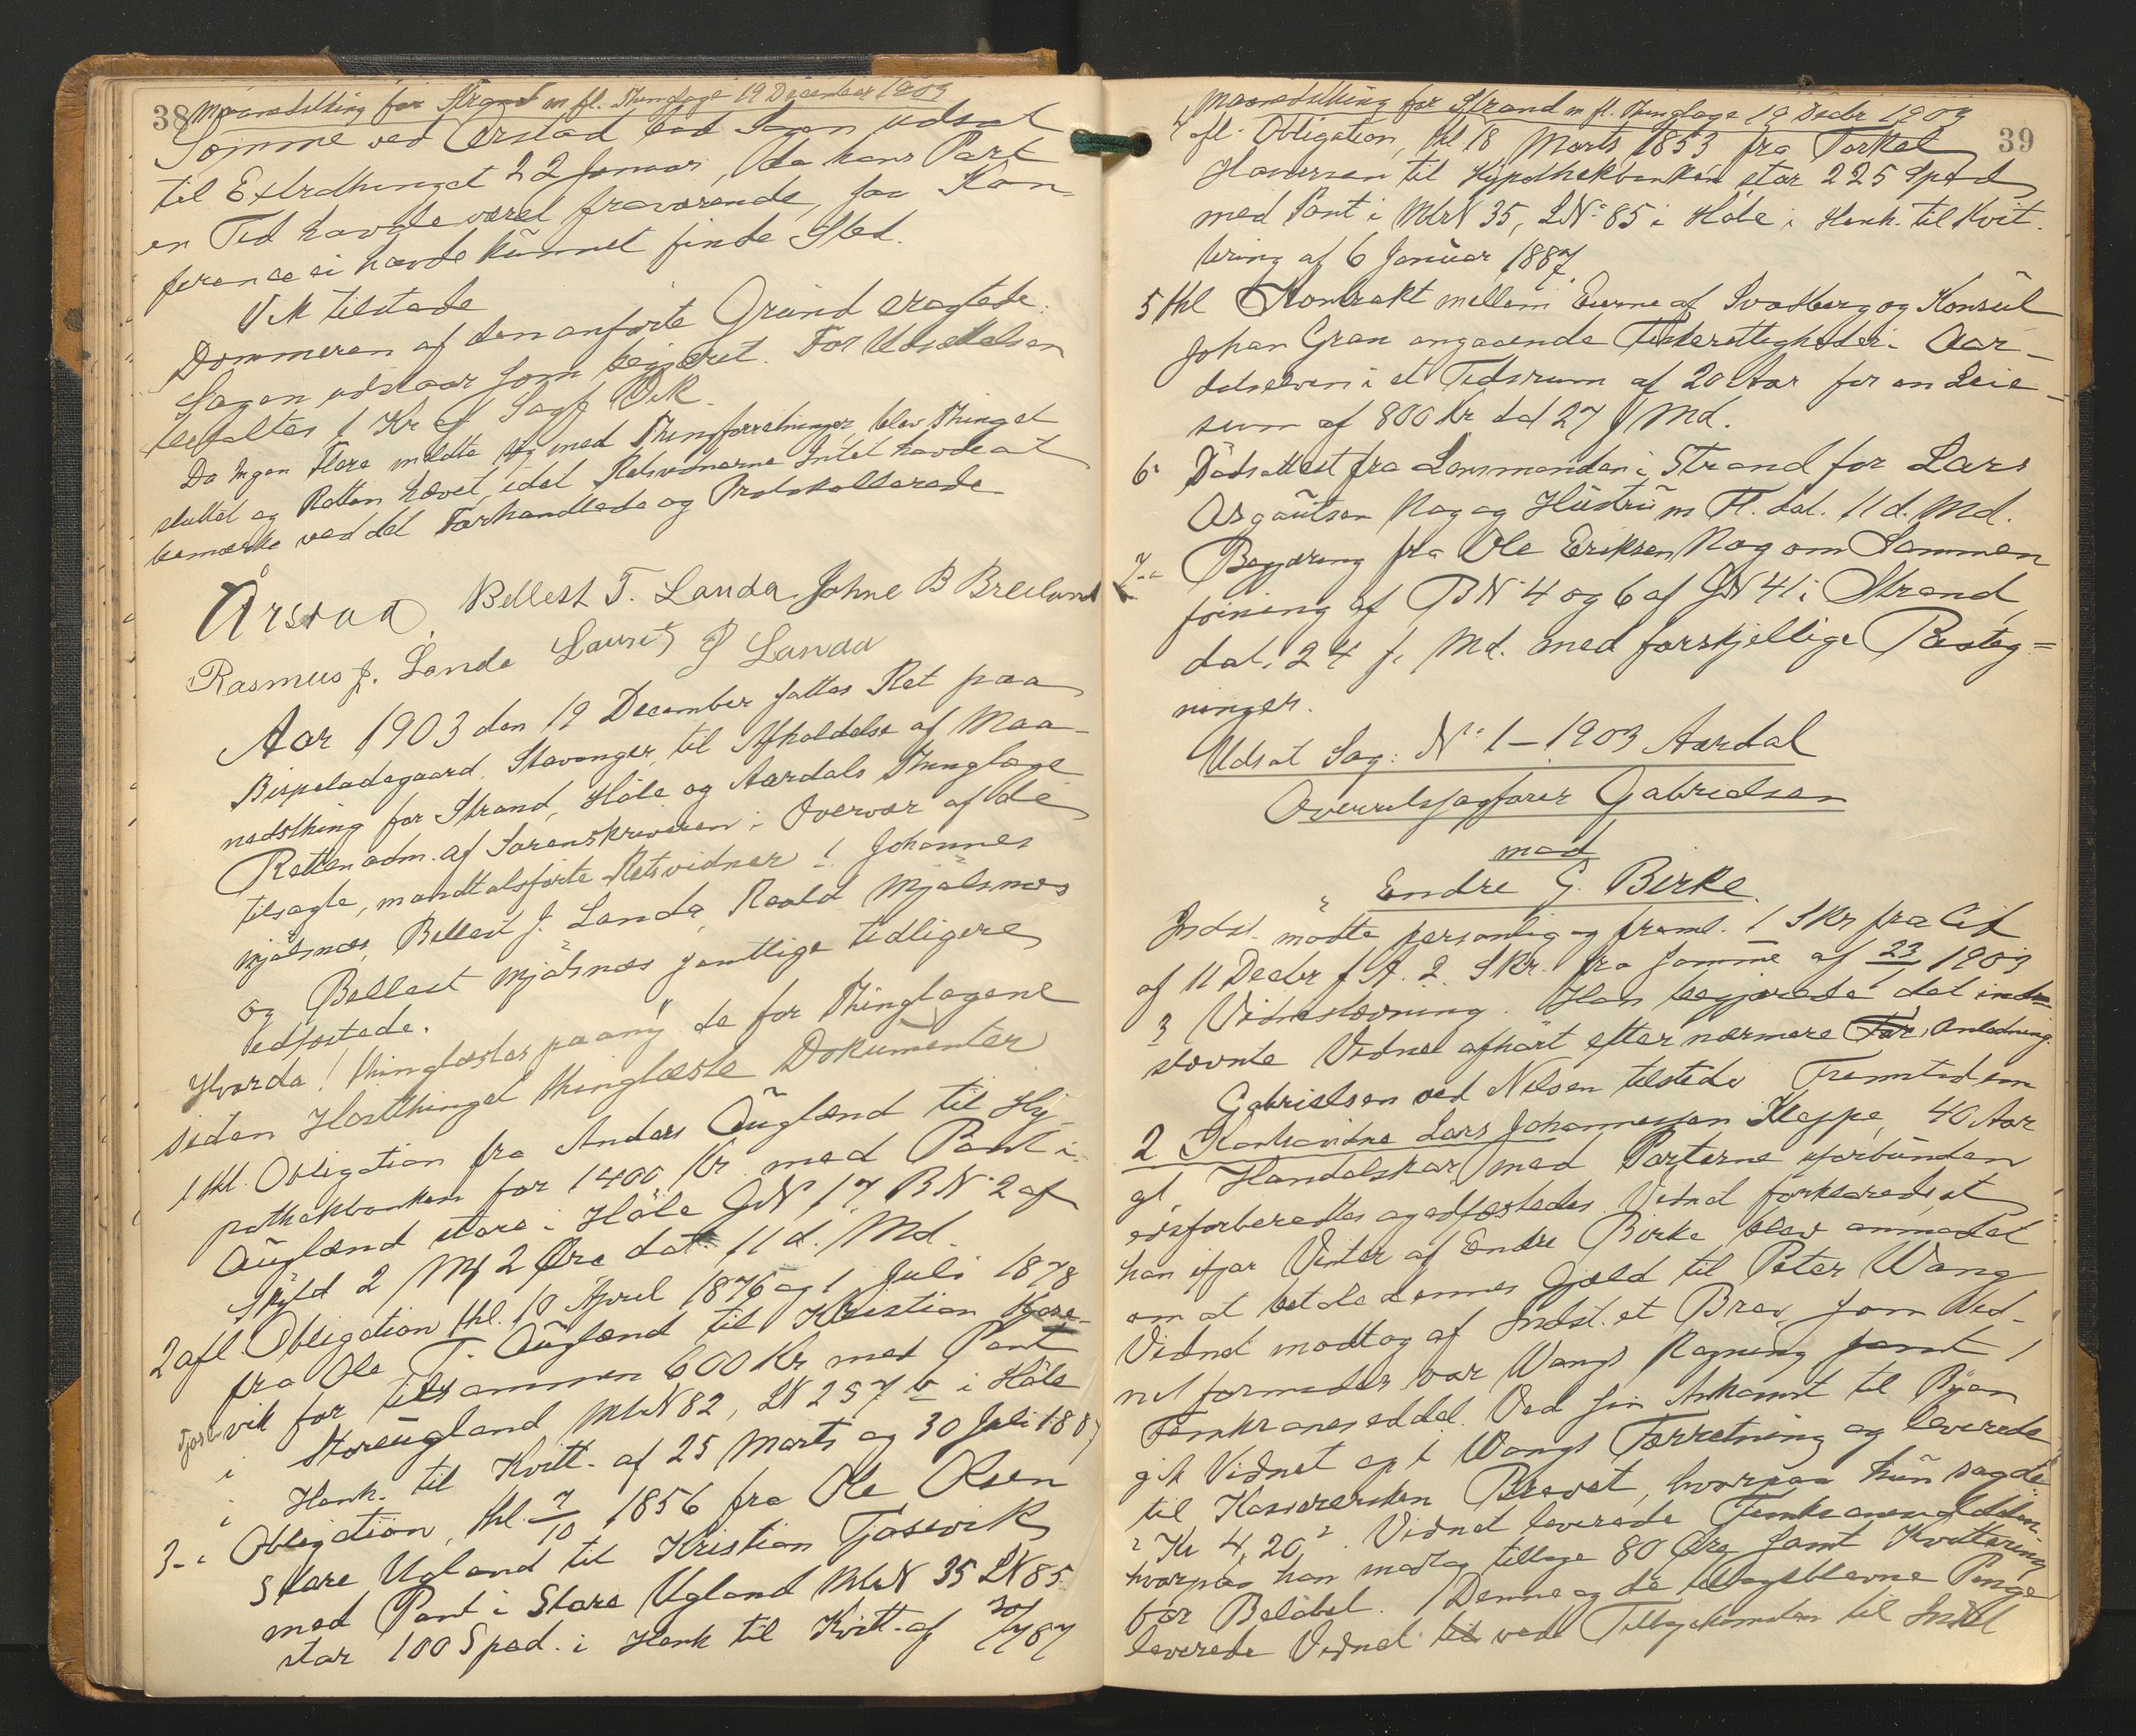 38
Maanedsthing for Strand m fl. Thinglage 19 December 1903
Somme ved Ørstad bad Sagen udsat
til Extrathinget 22 Januar, da hans Part
en Tid havde været fraværende, saa Kon-
ference ei havde kunnet finde Sted.
Vik tilstede
Dommeren af den anførte Grund eragtede:
Sagen udstaar som begjæret. For Udsættelsen
betaltes 1 Kr af Sagf Vik.
Da Ingen Flere meldte sig med Thingforretninger, blev Thinget
sluttet og Retten hævet, idet Retsvidnerne Intet havde at
bemærke ved det Forhandlede og Protokollerede
Årstad. Bellest T. Landa. Johne B Breiland
Rasmus J. Lande Laurits J Landaa
Aar 1903 den 19 December sattes Ret paa
Bispeladegaard, Stavanger, til Afholdelse af Maa-
nedsthing for Strand, Høle og Aardals Thinglage
Retten adm. af Sorenskriveren i Overvær af de
tilsagte, mandtalsførte Retsvidner: Johannes
Mjølsnæs, Bellest J. Landa, Roald Mjølsnæs
og Bellest Mjølsnæs samtlige tidligere
edfæstede.
Hvorda! Thinglæstes paany de for Thinglagene
siden Høstthinget thinglæste Dokumenter
1 thl. Obligation fra Anders Augland til Hy-
pothekbanken for 1400 Kr. med Pant i
Augland store i Høle GN 17 BN 2 af
Skyld 2 Mk 2 Øre dat. 11 d. Md.
2 afl. Obligation thl. 10 April 1876 og 1 Juli 1878
fra Ole T. Augland til Kristian
Tjosvik for tilsammen 600 Kr. med Pant
i Storeugland MtrN 82, LN 257 b i Høle
i Henh. til Kvitt. af 25 Marts og 30 Juli 1887
3 - " Obligation, thl. 7/10 1856 fra Ole Olsen
Store Ugland til Kristian Tjosevik
med Pant i Store Ugland MtrN 35 LN 85
stor 100 Spd. i Henh til Kvitt. af 30/7 87
39
Maanedsthing for Strand m fl. Thinglage 19 Decbr 1903
4 afl. Obligation, thl 18 Marts 1853 fra Torkel
Halversen til Hypothekbanken stor 225 Spd
med Pant i MtrN 35, LNo 85 i Høle i Henh. til Kvit-
tering af 6 Januar 1887.
5 thl Kontrakt mellem Eierne af Svadberg og Konsul
Johan Gran angaaende Fiskerettigheder i Aar-
dalselven i et Tidsrum af 20 Aar for en Leie-
sum af 800 Kr dat 27 f Md.
6 " Dødsattest fra Lensmanden i Strand for Lars
Asgautsen Nag og Hustru m Fl. dat. 11 d. Md.
7 - " Begjæring fra Ole Eriksen Nag om Sammen
føining af BN 4 og 6 af GN 41 i Strand
dat. 24 f. Md. med forskjellige Paateg=
ninger.
Udsat Sag: No 1 - 1903 Aardal
Overretssagfører Gabrielsen
mod
Endre G. Birke.
Indst. mødte personlig og freml. 1 Skr fra Cit
af 11 Decbr f A. 2. Skr. fra samme af 23 1903
3 Vidnestævning. Han begjærede det ind-
stævnte Vidne afhørt efter nærmere Anledning.
Gabrielsen ved Nilsen tilstede Fremstod som
2 Kontravidne Lars Johannessen Kleppe, 40 Aar
gl, Handelskar, med Parterne uforbunden
edsforberedtes og edfæstedes. Vidnet forklarede at
han ifjor Vinter af Endre Birke blev anmodet
om at betale dennes Gjæld til Peter Wang
Vidnet modtog af Indst. et Brev, som Vid-
net formoder var Wangs Regning samt 1
Femkroneseddel. Ved sin Ankomst til Byen
gik Vidnet op i Wangs Forretning og leverede
til Kasserersken Brevet, hvorpaa hun sagde:
" Kr 4,20 ". Vidnet leverede Femkronesedden.
hvorpaa han modtog tillage 80 Øre samt Kvittering
for Beløbet. Denne og de Penge
leverede Vidnet ved Tilbagekomsten til Indst